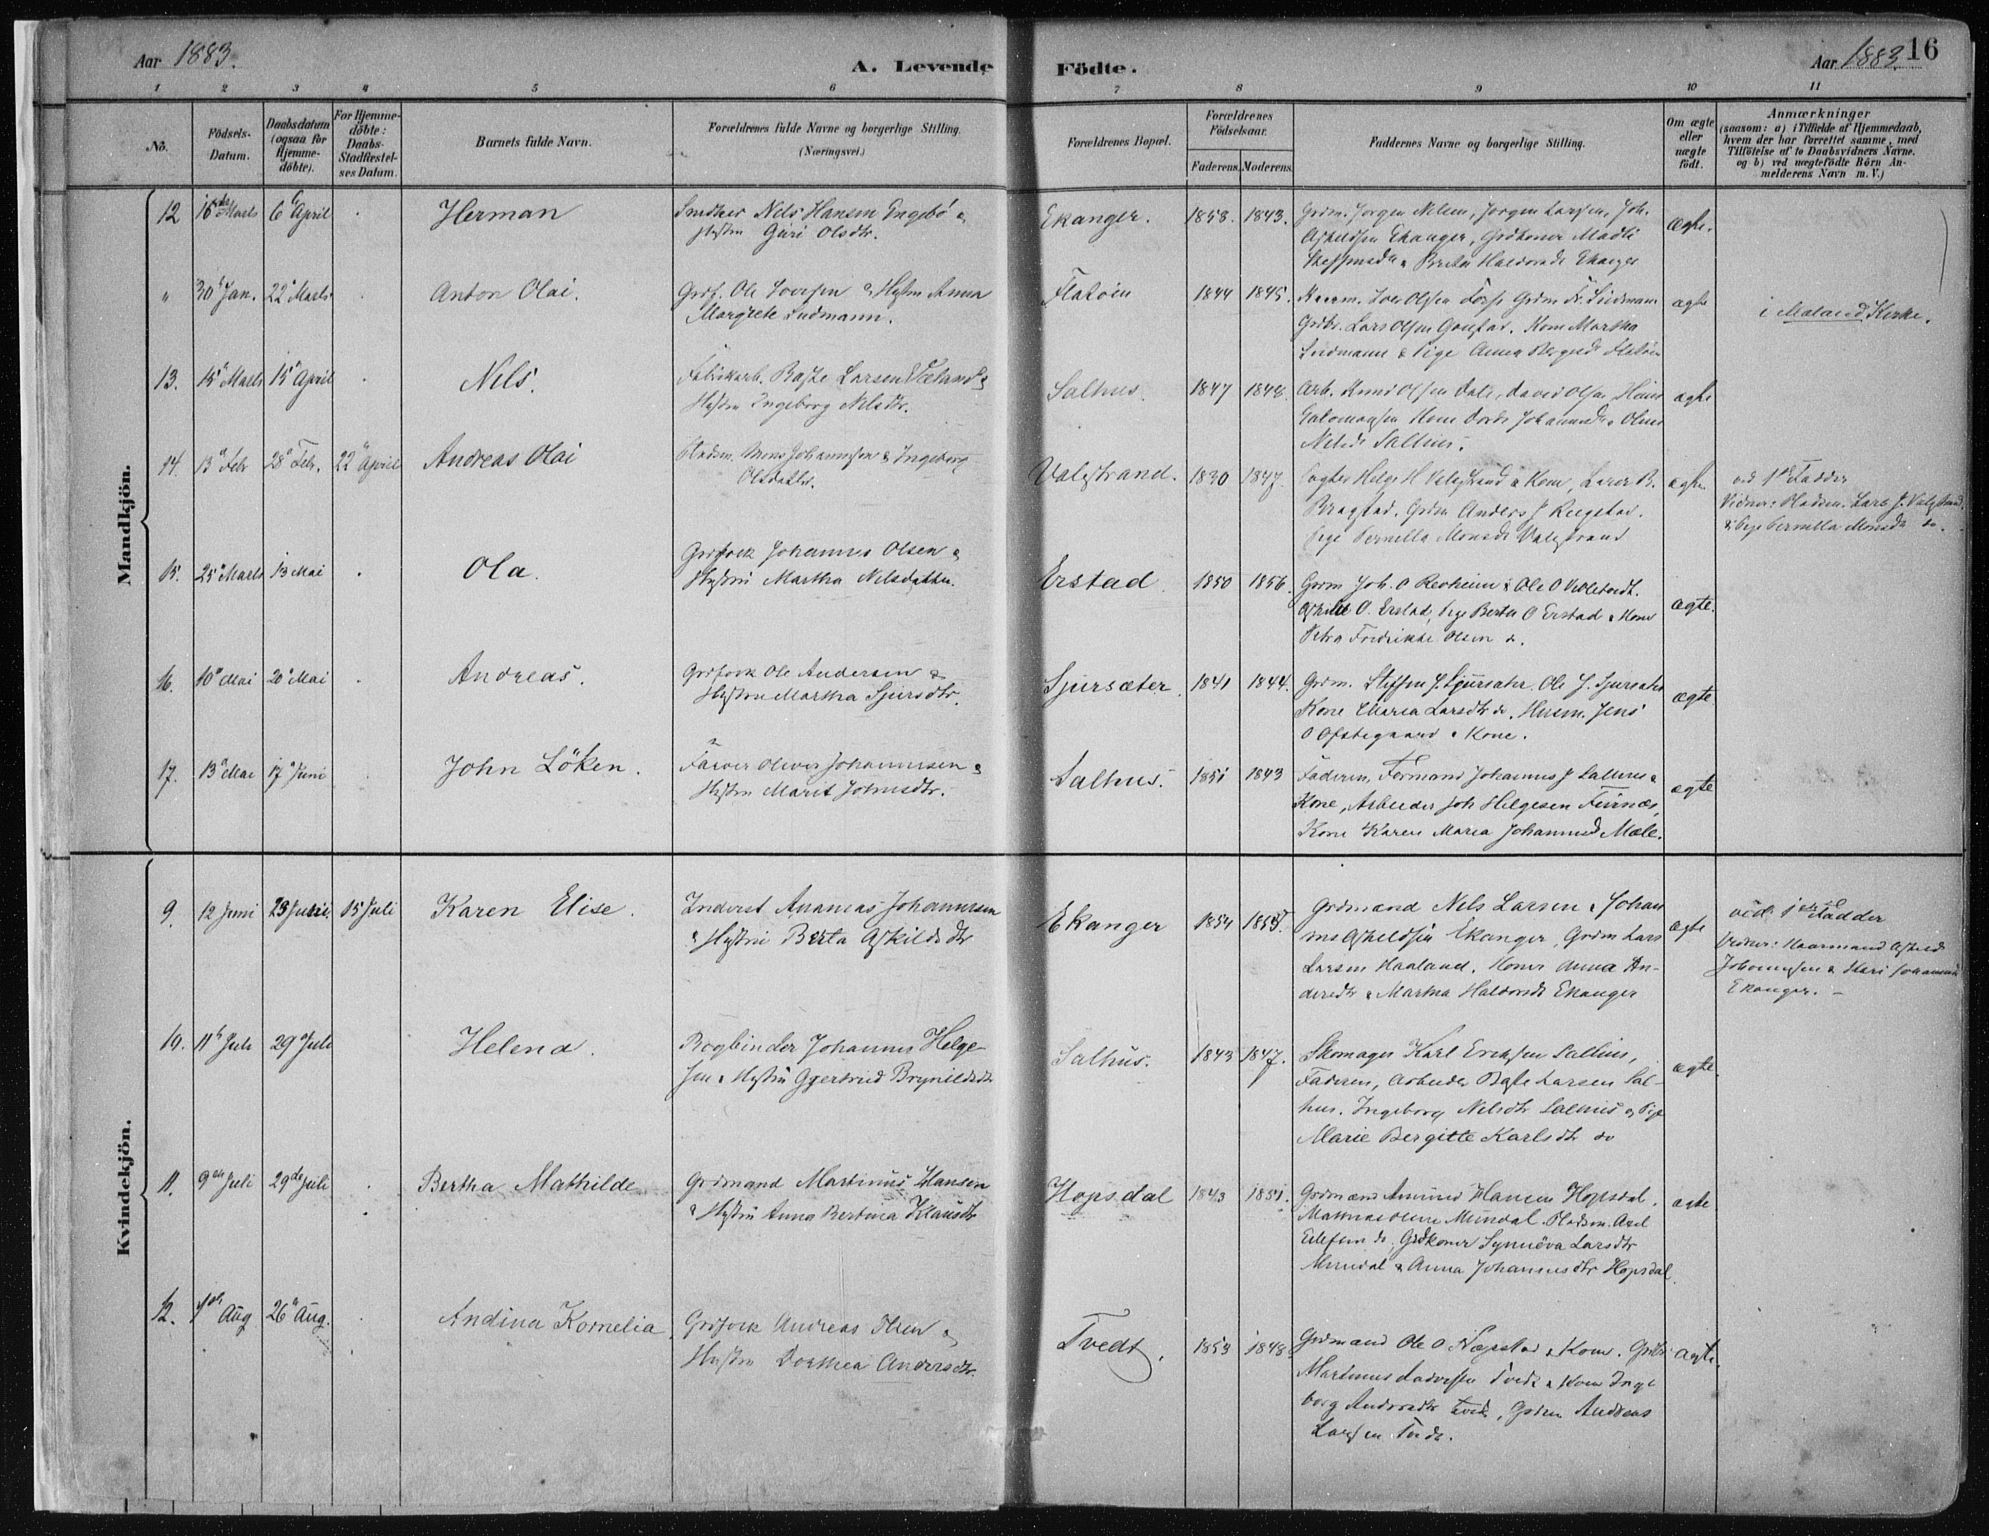 Aar 1883.
A. Levende Födte.
Aar 1883. 16
1 2 3 4 5 6 7 8 9 10 11
No.
Födsels-Datum.
Daabsdatum (ogsaa för Hjemme-döbte).
For Hjemme-döbte: Daabs-Stadfæstel-ses Datum.
Barnets fulde Navn.
Forældrenes fulde Navne og borgerlige Stilling. (Næringsvei.)
Forældrenes Bopæl.
Forældrenes Födselsaar.
Faderens. Moderens.
Faddernes Navne og borgerlige Stilling.
Om ægte eller uægte födt.
Anmærkninger
(saasom: a) i Tilfælde af Hjemmedaab,
hvem der har forrettet samme, med
Tilföielse af to Daabsvidners Navne.
og b) ved uægtefödte Börn An-
melderens Navn m. V.)
Mandkjön.
12 16de Marts 6 April Herman
Nils Hansen Engebö &
Hustru Guri Olsdtr.
Ekanger. 1858. 1843.
Grdm. Jörgen Nilsen, Jörgen Larsen, Joh.
Askeldsen Ekanger, Grdkoner Madli
Steffensd & Brita Haldorsd Ekanger
ægte.
" 30 Jan. 22 Marts Anton Olai.
Grdf. Ole Iversen & Hustru Anna
Margrete Ludmann.
Flatöen 1844 1845.
Iver Olsen
Grdbr. Lars Olsen Kone Martha
Lindmann & Pige Anna
ægte
i Mæland Kirke.
13. 15 Marts 15 April Nils.
Fabrikarb. Baste Larsen &
Hustru Ingeborg Nilsdtr.
Salhus. 1847 1848.
Arb. Knud Olsen Dale, David Olsen,
Kone Dorte Johannesd & Oline
Nilsd Salhus.
ægte
14. 13 Febr 28 Febr. 22 April Andreas Olai
Pladsm. Mons Johannesen & Ingeborg
Olsdatter.
Valestrand. 1830 1847.
Helge H Valestrand & Kone, B.
Grdm Anders J
Pige Pernella Monsd Valestrand
ægte
ved 1ste Fadder
Vidner: Pladsm. Lars J. Valestrand
& Pige Pernella Monsd do.
15. 25 Marts 13 Mai Ola.
Grdfolk Johannes Olsen &
Hustru Martha Nilsdatter.
Erstad. 1850 1856.
Grdm Joh. O Revheim & Ole O
Askild O. Erstad, Pige Berta O Erstad & Kone
Petra Fredrikke Olsen do.
ægte.
16. 10 Mai 20 Mai Andreas.
Grdfolk Ole Andersen &
Hustru Martha Sjursdtr.
Sjursæter. 1841 1844.
Grdm. Steffen J. Sjursæter. Ole J. Sjursæter
Kone Maria Larsdtr do. Husm. Jens
O Ofstegaard & Kone.
ægte
17. 13 Mai 17 Juni John Löken.
Farver Oliver Johannesen &
Hustru Marit Johnsdtr.
Salhus. 1851 1843
Faderen, Formand Johannes J Salhus &
Kone, Arbeider Joh Helgesen
Kone Karen Maria Johannesd Mæle.
ægte
Kvindekjön.
9. 12 Juni 23 Juni 15 Juli Karen Elise.
Inderst Ananias Johannesen
& Hustru Berta Askildsdtr
Ekanger 1854 1855.
Grdmand Nils Larsen & Johan
nes Askeldsen Ekanger, Grdm Lars
Larsen Haaland. Koner Anna An-
dersdtr & Martha Haldorsd Ekanger
ægte
ved 1ste Fadder
Vidner: Askild
Johannesen & Kari Johannesd
Ekanger.
10. 11 Juli 29 Juli Helena.
Bogbinder Johannes Helge-
sen & Hustru Gjertrud Brynildsdtr
Salhus. 1843 1847.
Skomager Karl Eriksen Salhus,
Faderen, Arbeider Baste Larsen Sal-
hus. Ingeborg Nilsdtr Salhus og Pige
Marie Bergitte Karlsdtr do
ægte.
11. 9de Juli 29de Juli Bertha Mathilde
Grdmand Martinus Hansen
& Hustru Anna Bertina Klausdtr
Hopsdal 1843 1851.
Grdmand Amund Hansen Hopsdal.
Mundal. Pladsm. Axel
do. Grdkoner Synnöva Larsdtr
Mundal & Anna Johannesdtr Hopsdal.
ægte
12. Aug 26 Aug. Andina Kornelia
Grdfolk Andreas Olsen &
Hustru Dorthea Andersdtr.
Tvedt. 1853 1848.
Grdmand Ole O & Kone. Grdbr
Martinus Tvedt & Kone Inge
borg Andersdtr Tvedt, Grdm Andreas
Larsen Tvedt.
ægte.